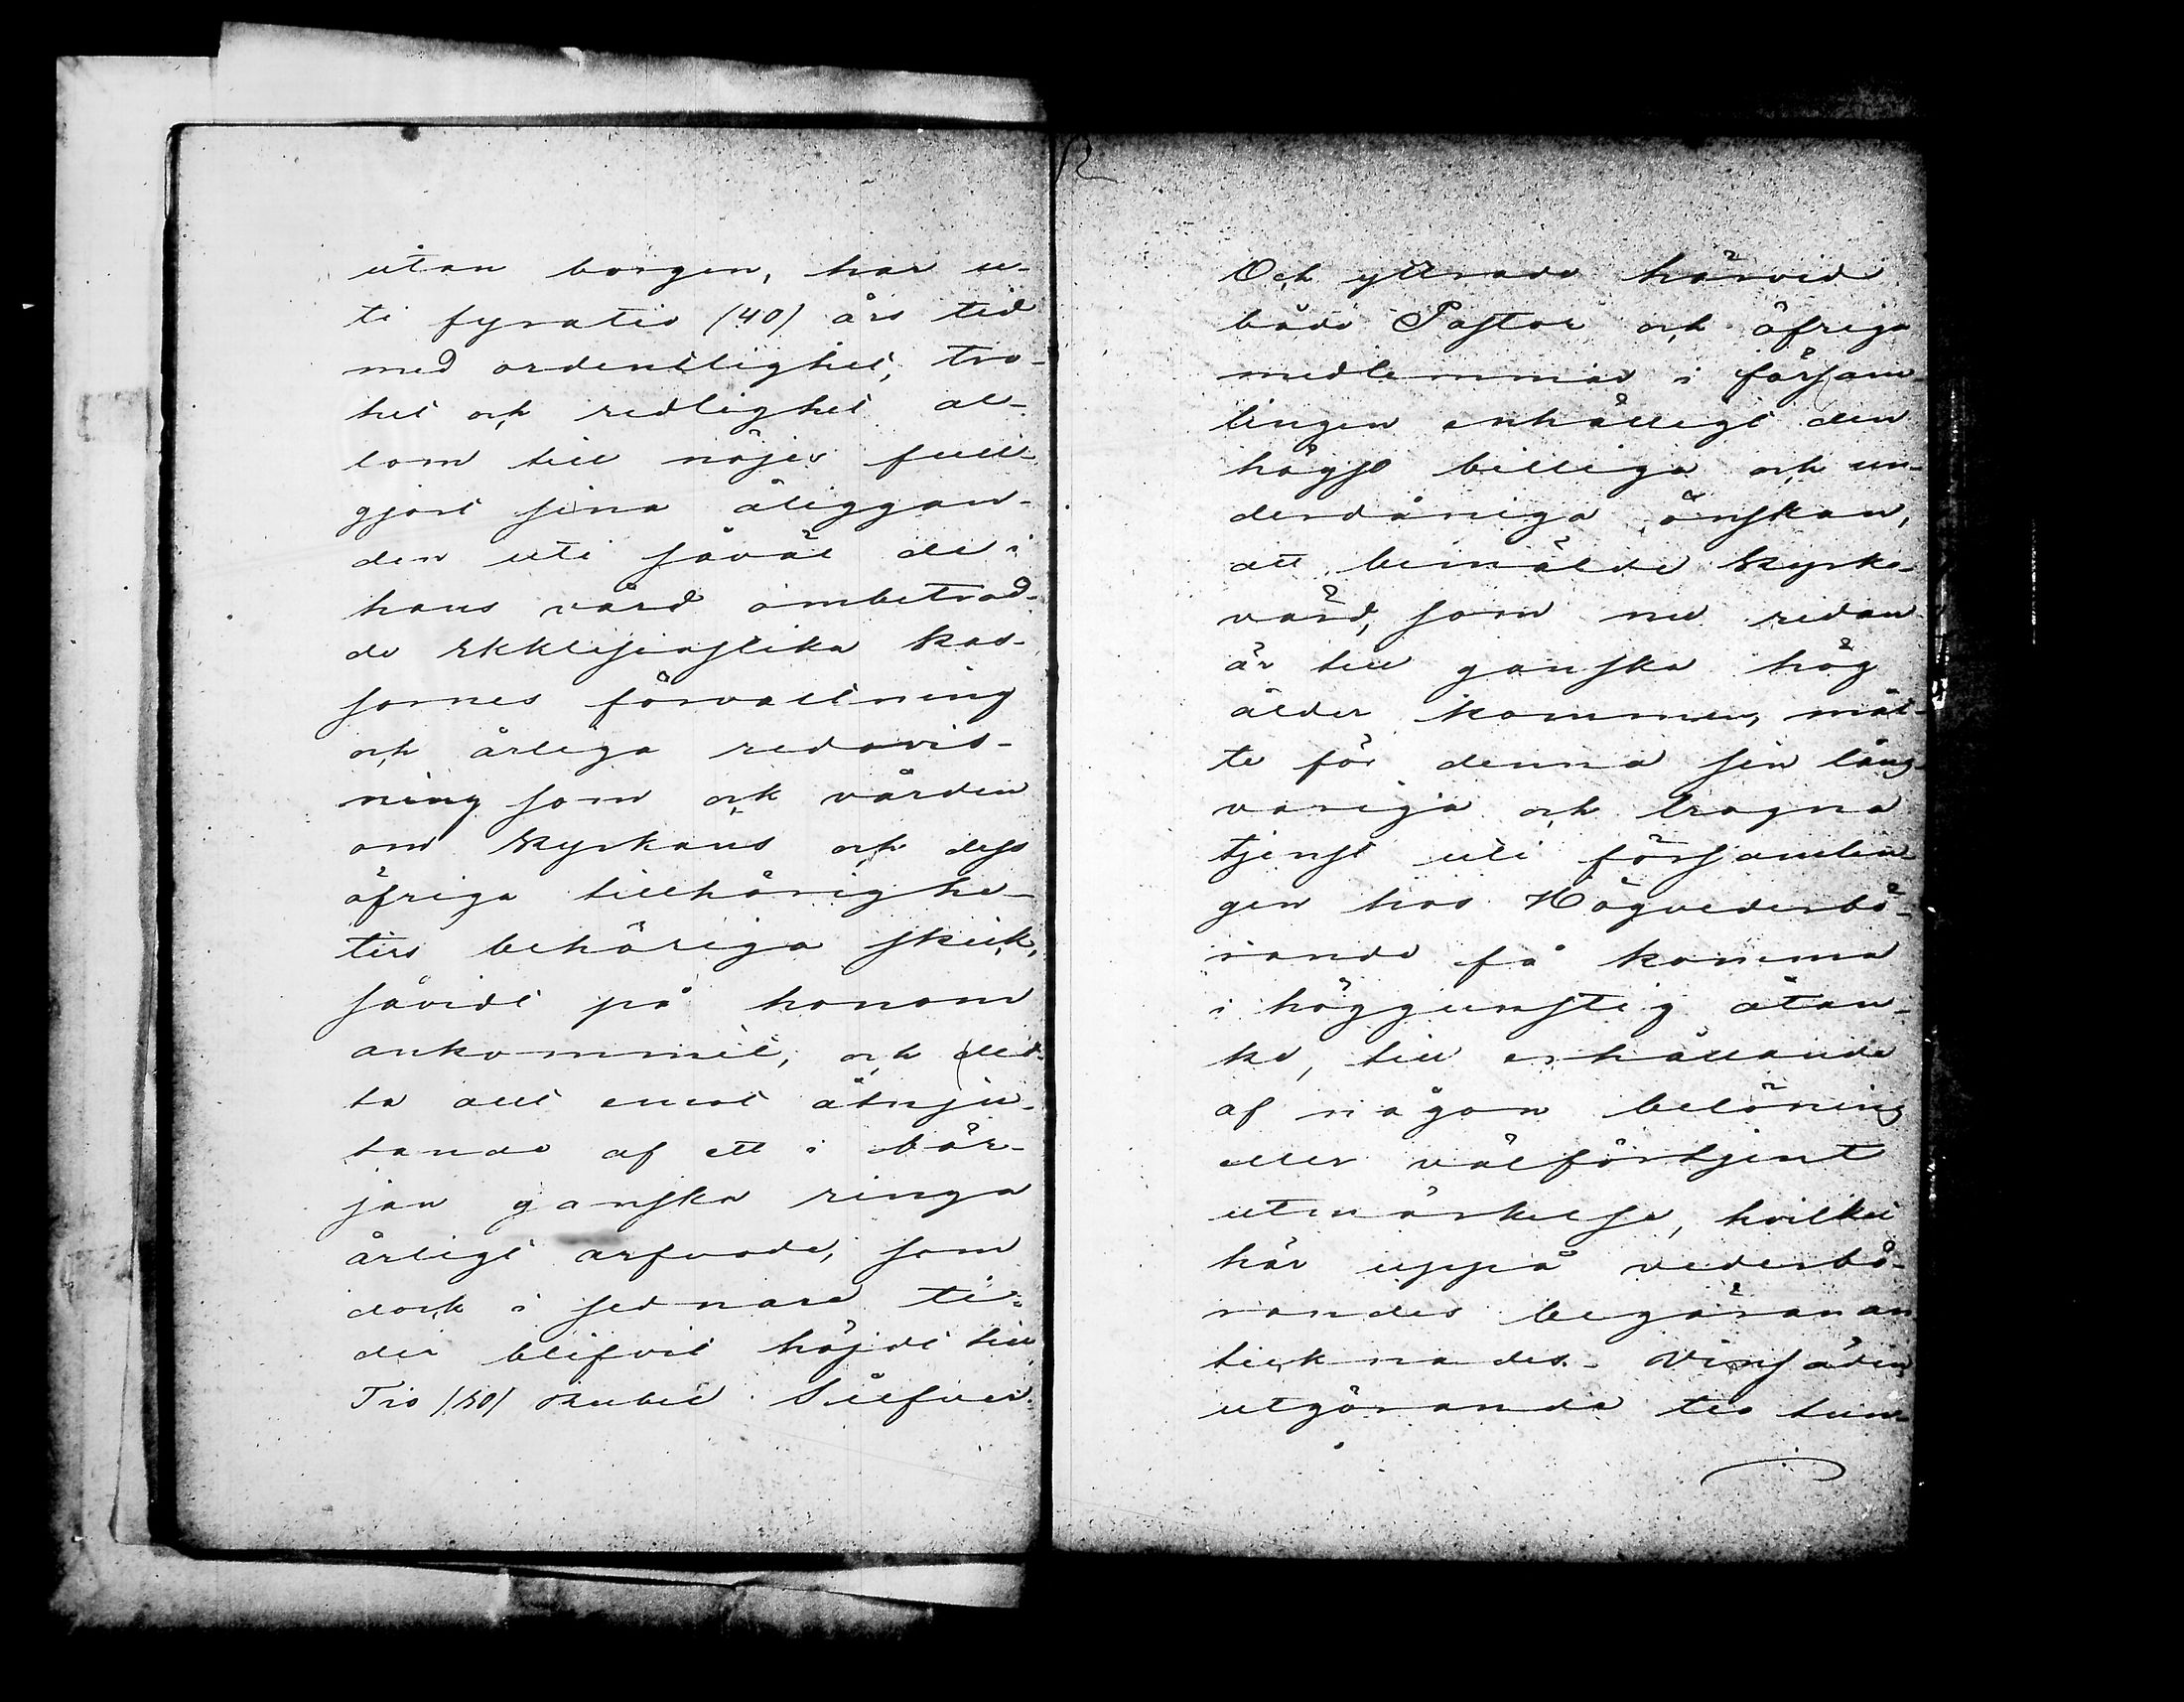 utan borgen, har u-
ti fyratio (40) års tid
med ordentlighet, tro-
het och redlighet al-
lom till nöjes full-
gjort sina åliggan-
den uti såväl de i
hans vård ombetrod-
de Ekklesiastika kas-
sornes förvaltning
och årliga redovis-
ning som ock vården
om kyrkans och dess
öfriga tillhörighe-
ters behöriga skick,
såvidt på honom
ankommit, och det-
ta allt emot åtnju-
tande af ett i bör-
jan ganska ringa
årligt arfvode, som
dock i sednare ti-
der blifvit höjdt till
Tio (10) Rubel Silfver.
Och yttrade härvid
både Pastor och öfriga
medlemmar i församm-
lingen enhälligt den
högst billiga och un-
derdåniga önskan,
att bemälde kyrko-
värd, som nu redan
är till ganska hög
ålder kommen, måt-
te för denna sin lång-
variga och trogna
tjenst uti församlin-
gen hos Högvederbö-
rande få komma
i höggunstig åtan-
ke, till erhållande
af någon belöning
eller välförtjent
utmärkelse, hvilket
här uppå vederbö-
randes begäran an
tecknades. Vinsäden
utgörande tio tun-